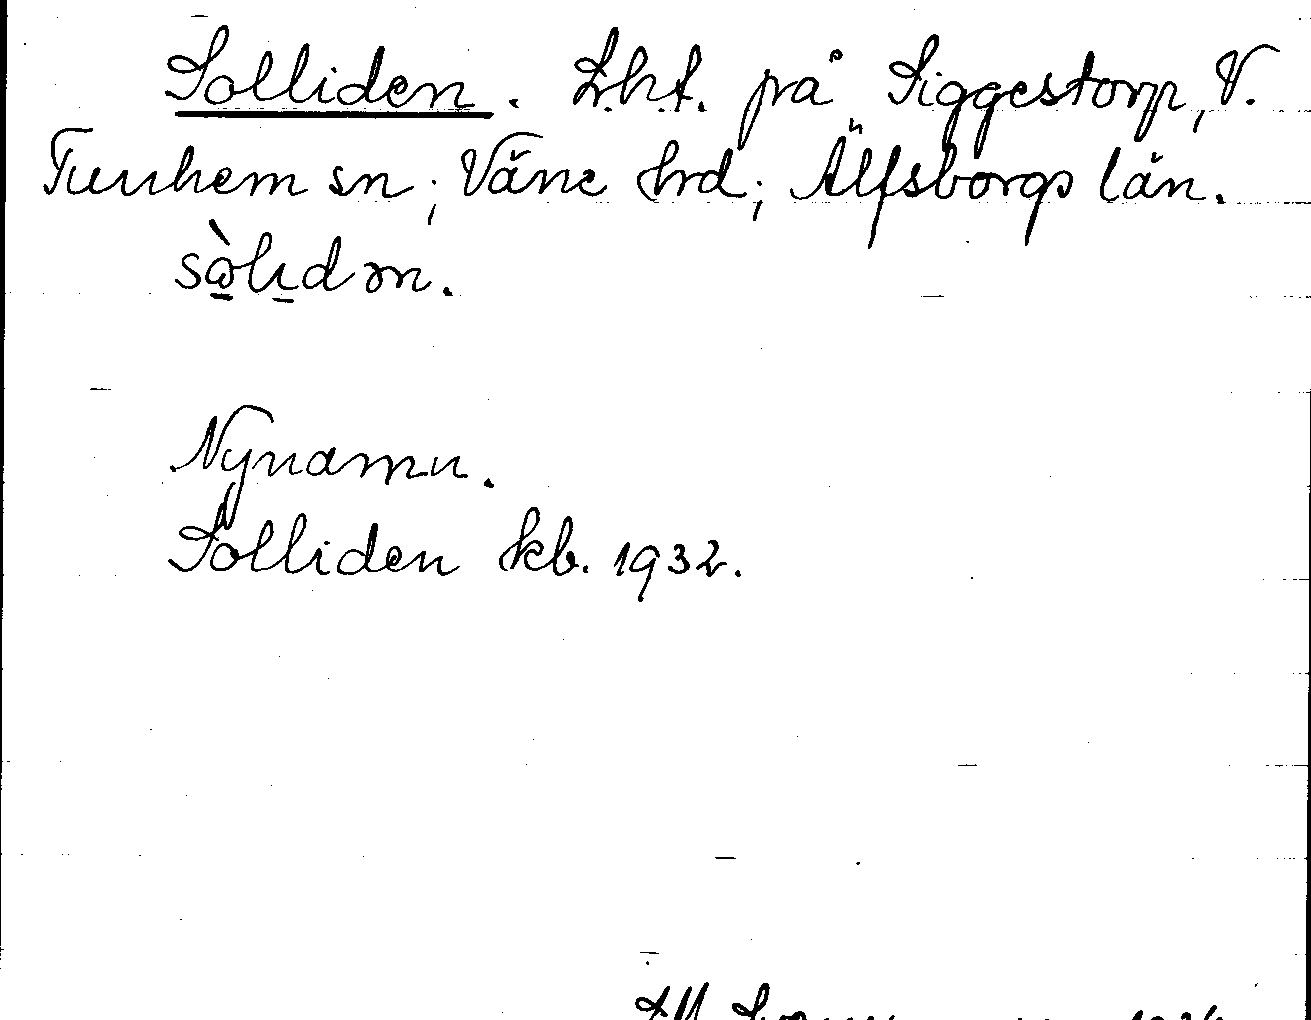 Solliden. Lht. på Siggestorp, V.
Tunhem sn; Väne hrd; Älfsborgs län.
sòlıdən.
Nynamn.
Solliden kb. 1932.